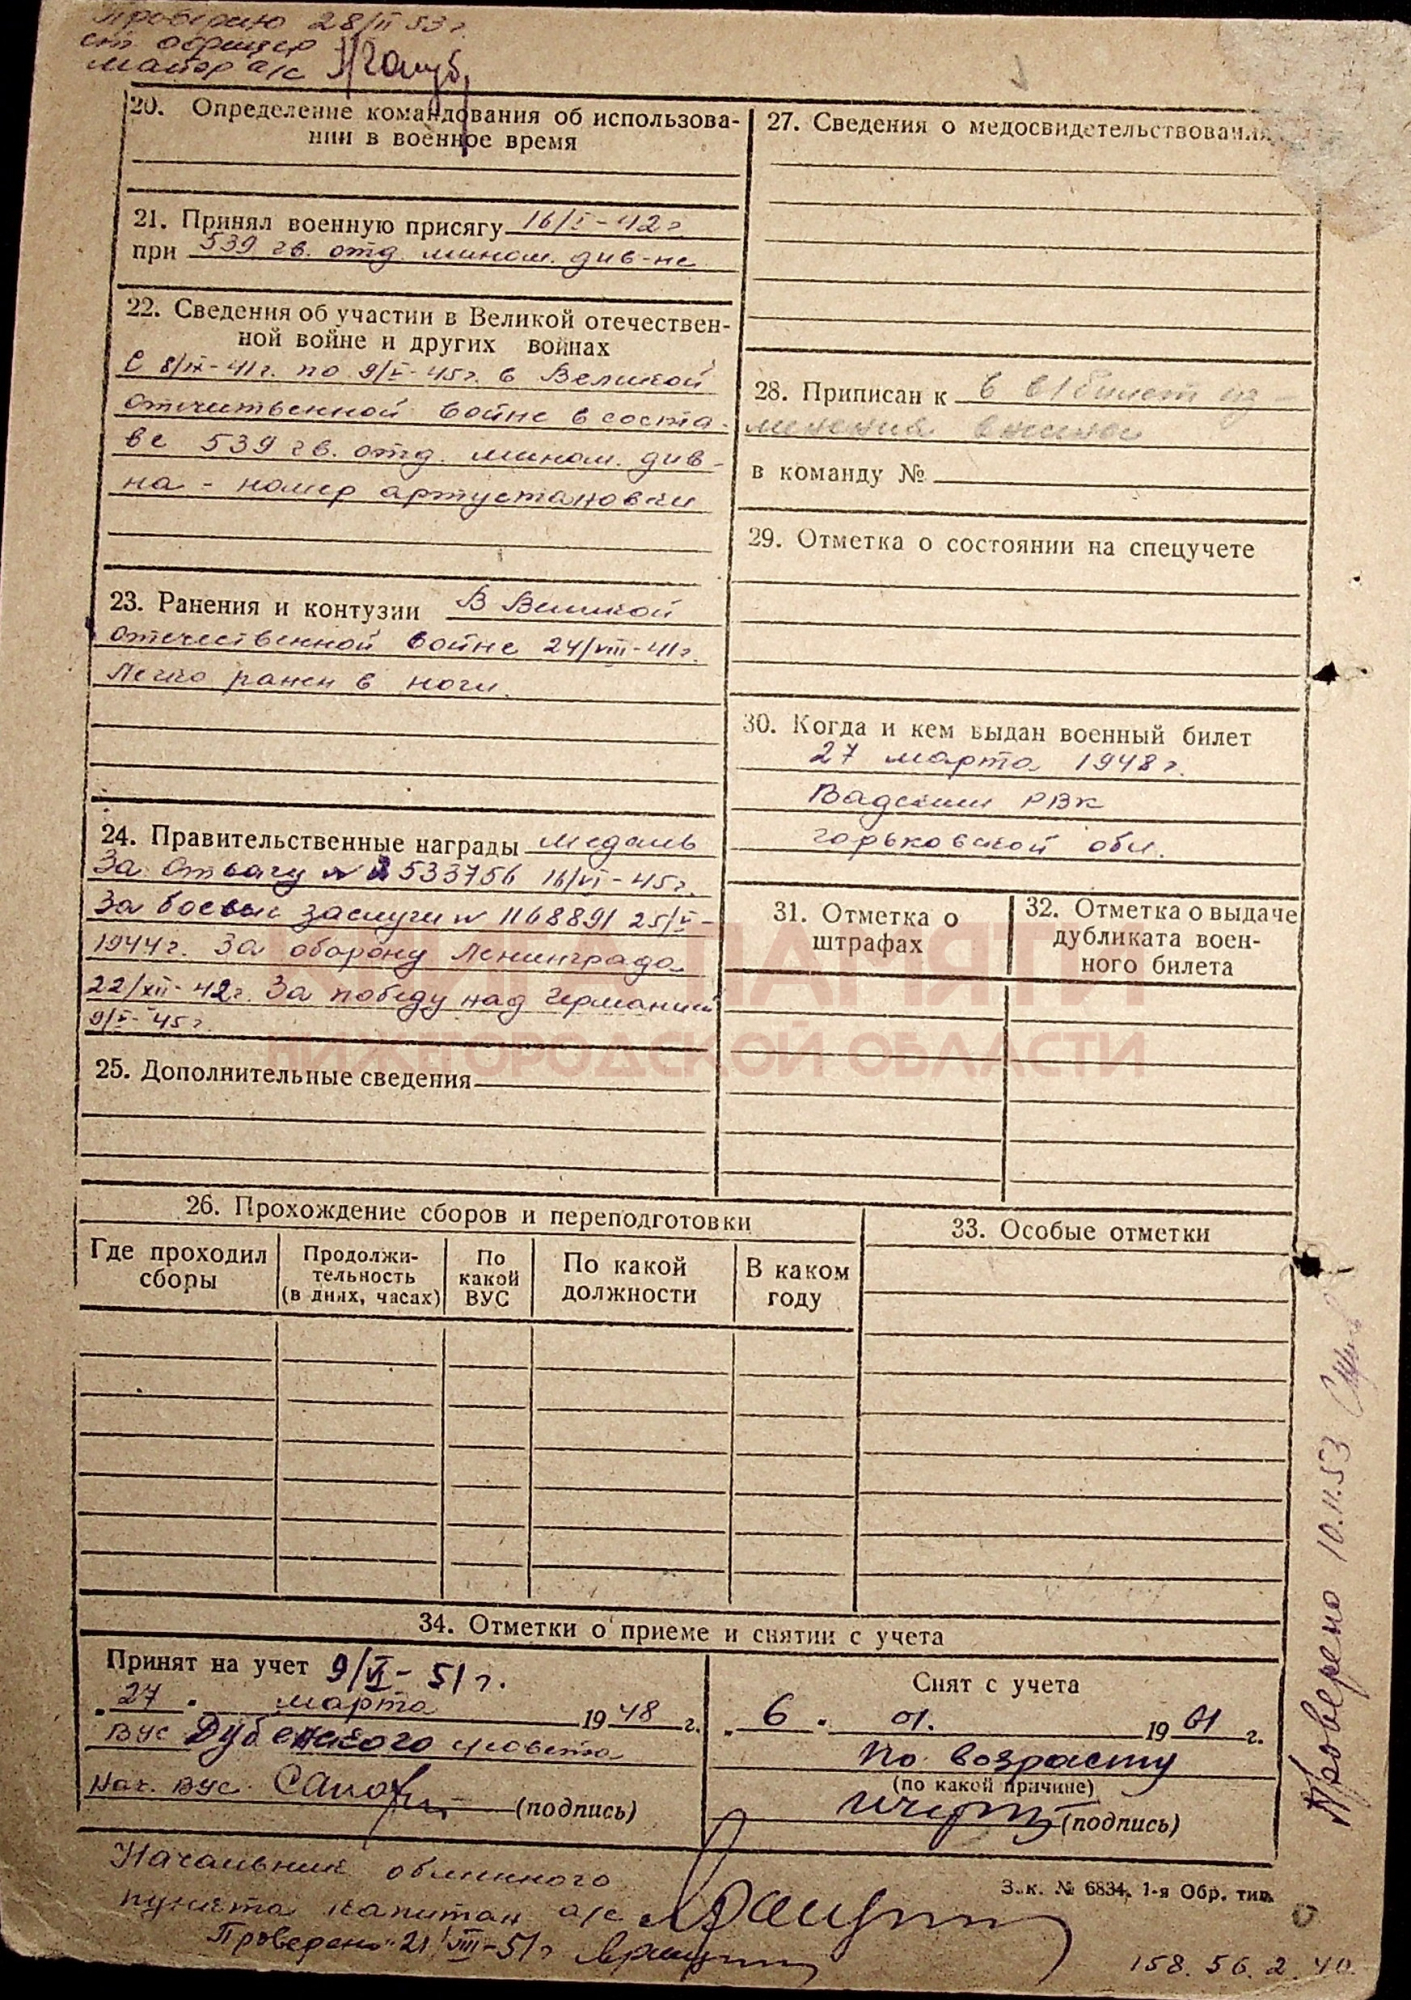 Проверено 28/II 53 г.
ст. офицер
майор а/с
20. Определение командования об использова-
нии в военное время
21. Принял военную присягу 16/I-42 г.
при 539 гв. отд. мином. див-не
22. Сведения об участии в Великой отечествен-
ной войне и других войнах
С 8/IX-41 г. по 9/V-45 г. в Великой
отечественной войне в соста-
ве 539 гв. отд. мином. див-
на - номер артустановки
23. Ранения и контузии В Великой
отечественной войне 24/VIII-41 г.
Легко ранен в ноги.
24. Правительственные награды медаль
За отвагу № 2533756 16/VI-45 г.
За боевые заслуги № 1168891 25/V-
1944 г. За оборону Ленинграда
22/XII-42 г. За победу над Германией
9/V-45 г.
25. Дополнительные сведения
26. Прохождение сборов и переподготовки
Где проходил сборы
Продолжи-
тельность
(в днях, часах)
По
какой
ВУС
По какой
должности
В каком
году
27. Сведения о медосвидетельствовании
28. Приписан к в в/билет из-
менения внесены
в команду №
29. Отметка о состоянии на спецучете
30. Когда и кем выдан военный билет
27 марта 1948 г.
Вадским РВК
горьковской обл.
31. Отметка о
штрафах
32. Отметка о выдаче
дубликата воен-
ного билета
33. Особые отметки
КНИГА ПАМЯТИ
НИЖЕГОРОДСКОЙ ОБЛАСТИ
34. Отметки о приеме и снятии с учета
Принят на учет 9/VI-51 г.
"27" марта 1948 г.
ВУС Дубенского совета
Нач. ВУС (подпись)
Снят с учета
"6" 01. 1961 г.
по возрасту
(по какой причине)
(подпись)
Проверено 10.11.53
Начальник облачного
пункта капитан а/с
Проверено 21/VIII-51 г
Зак. № 6834. 1-я Обр. тип.
158. 56. 2. 40.